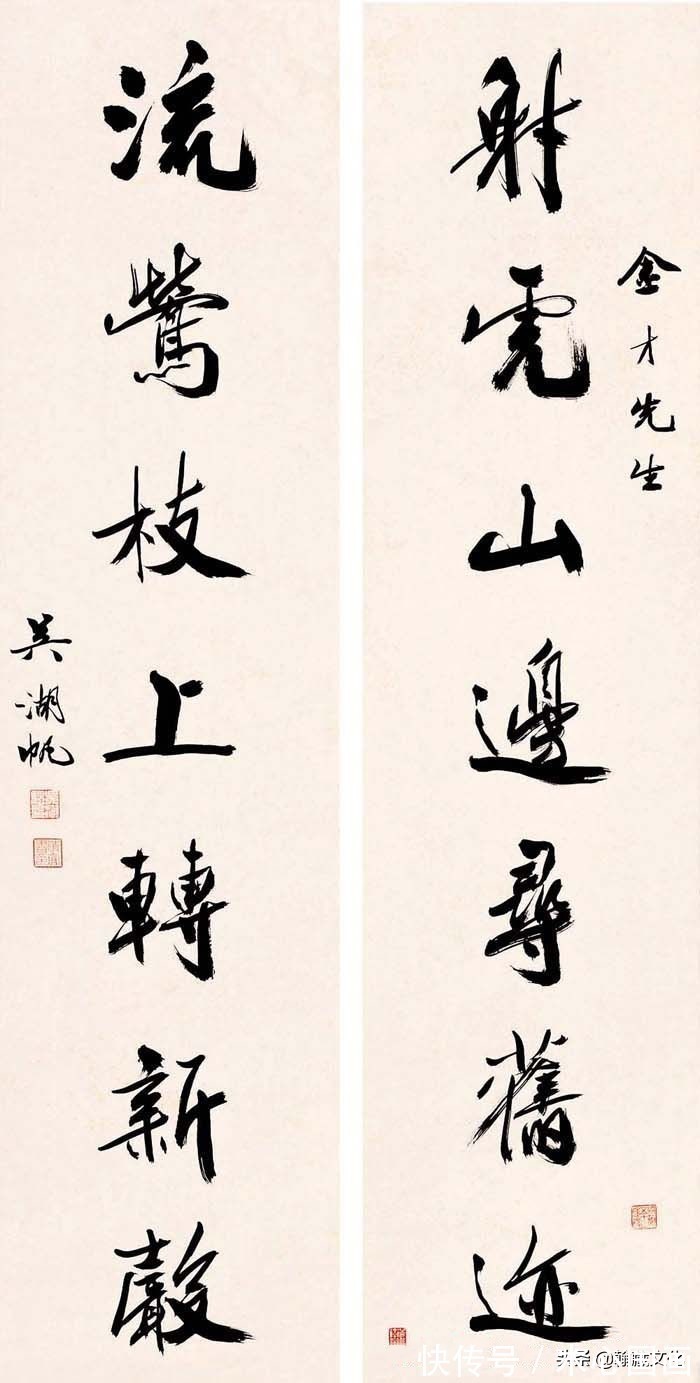 金才先生
射虎山邊尋舊迹
流鶯枝上轉新聲
吳湖帆
快传号/
头条@翰墨文化